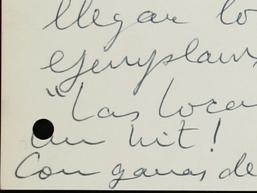 llegar lo
ejemplar
"Las loca
un hit!
Con ganas de